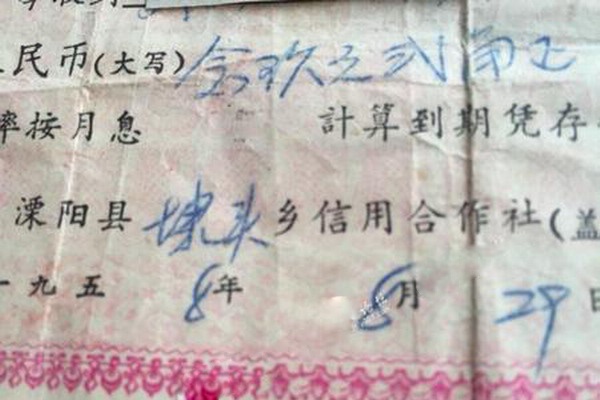 民币(大写)玖元贰角正
率按月息 計算到期凭存
溧阳县埭头乡信用合作社(盖
一九五8年8月29日